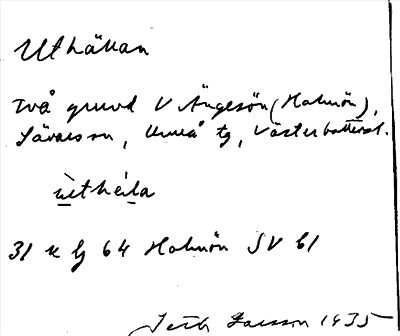 Uthällan
två grund V Ängesön (Holmön),
Sävars sn, Umeå tg, Västerbotten l.
ùtheila
31 u lg 64 Holmön SV bl
Larsson 1935